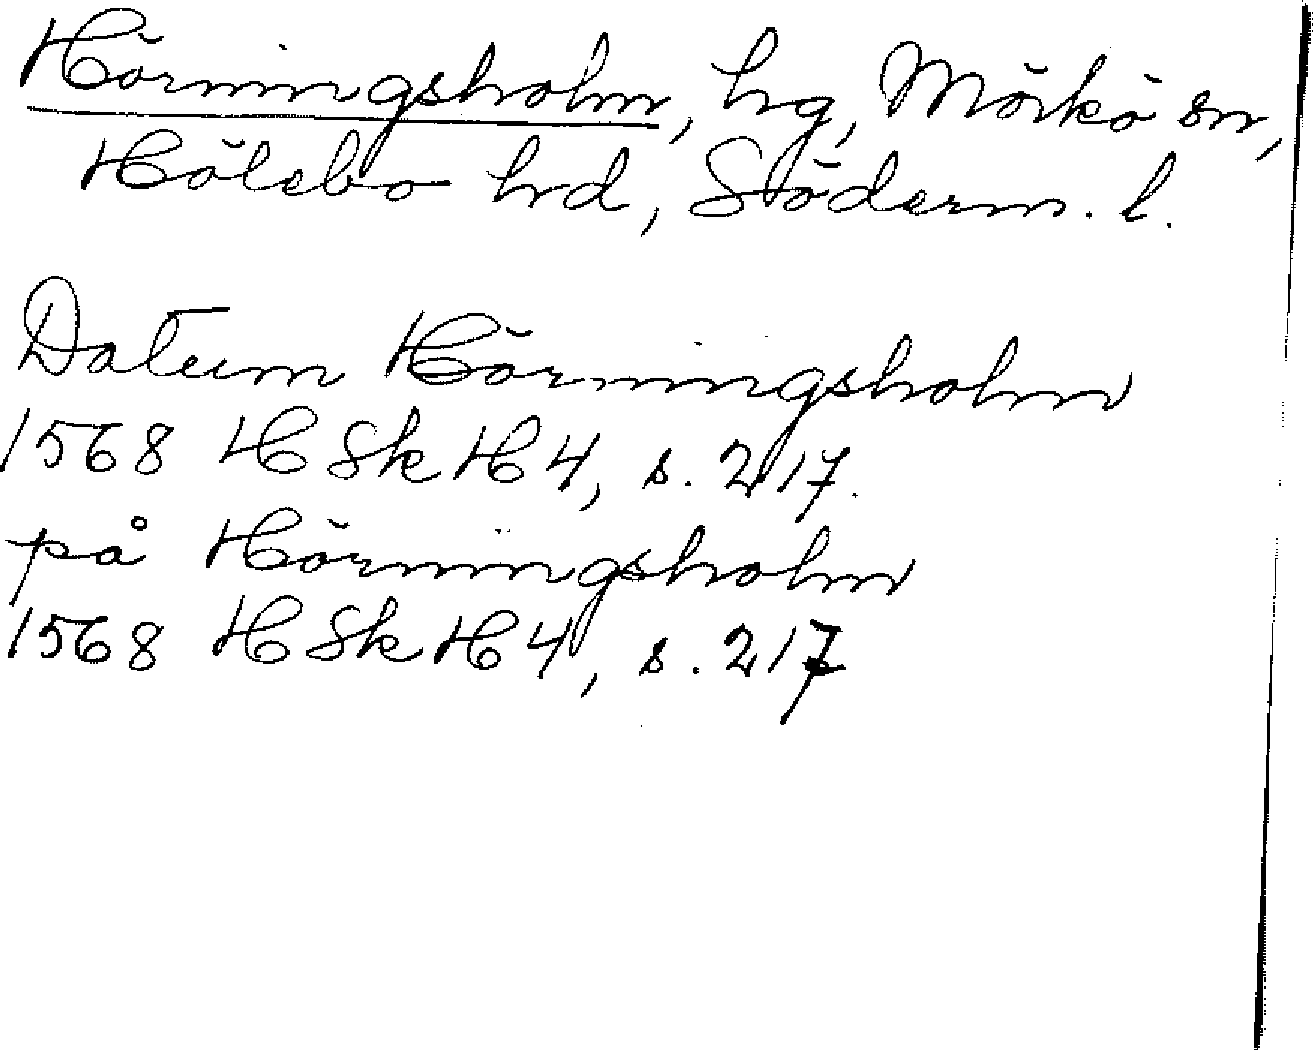 Hörningsholm, hg, Mörkö sn,
Hölebo hrd, Söderm. l.
Datum Hörningsholm
1568 HSkH 4, s. 217.
på Hörningsholm
1568 HSkH 4, s. 217